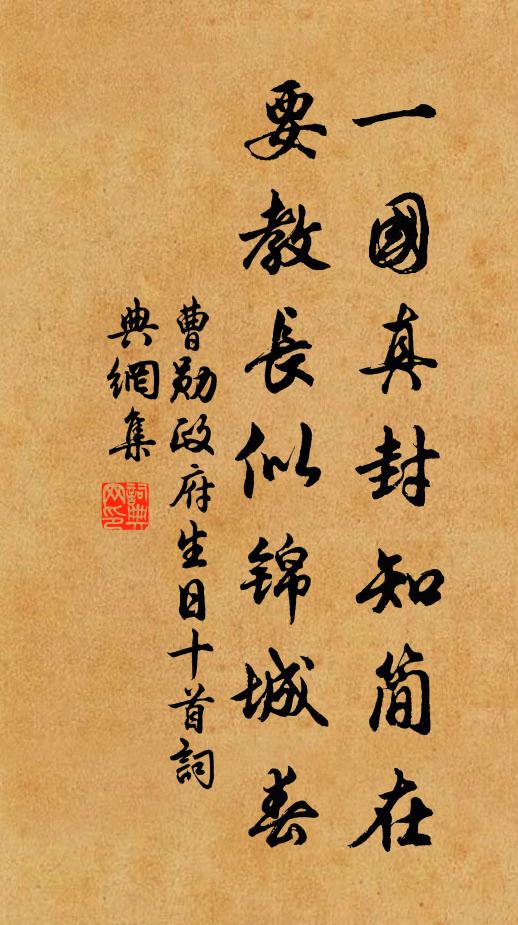 一國真封知简在
要教長似锦城春
曹勛政府生日十首詞
典網集
詞典
网印